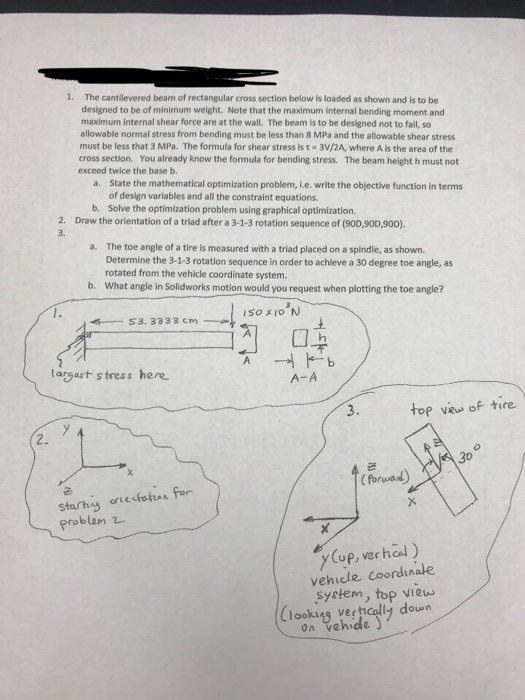 1. The cantilevered beam of rectangular cross section below is loaded as shown and is to be
designed to be of minimum weight. Note that the maximum internal bending moment and
maximum internal shear force are at the wall. The beam is to be designed not to fail, so
allowable normal stress from bending must be less than 8 MPa and the allowable shear stress
must be less that 3 MPa. The formula for shear stress is τ = 3V/2A, where A is the area of the
cross section. You already know the formula for bending stress. The beam height h must not
exceed twice the base b.
a. State the mathematical optimization problem, i.e. write the objective function in terms
of design variables and all the constraint equations.
b. Solve the optimization problem using graphical optimization.
2. Draw the orientation of a triad after a 3-1-3 rotation sequence of (90D,90D,90D).
3.
a. The toe angle of a tire is measured with a triad placed on a spindle, as shown.
Determine the 3-1-3 rotation sequence in order to achieve a 30 degree toe angle, as
rotated from the vehicle coordinate system.
b. What angle in Solidworks motion would you request when plotting the toe angle?
1.
53.3333 cm
150 x 10³ N
A
A
h
b
A-A
largest stress here
2.
y
x
z
starting orientation for
problem 2
3.
top view of tire
z
30°
x
z
(forward)
x
y (up, vertical)
vehicle coordinate
system, top view
(looking vertically down
on vehicle)